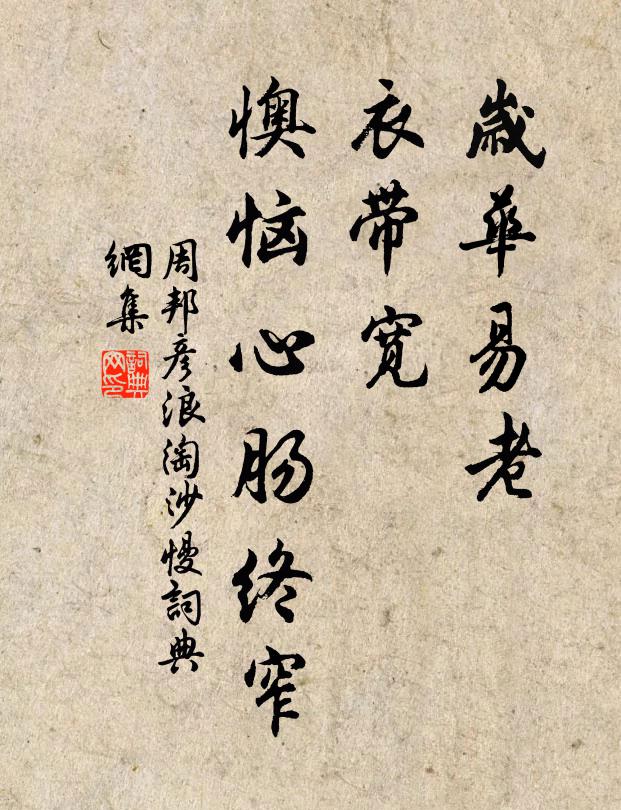 歲華易老
衣带寬
懊恼心肠終窄
周邦彦浪淘沙慢詞典
網集
詞典
网印